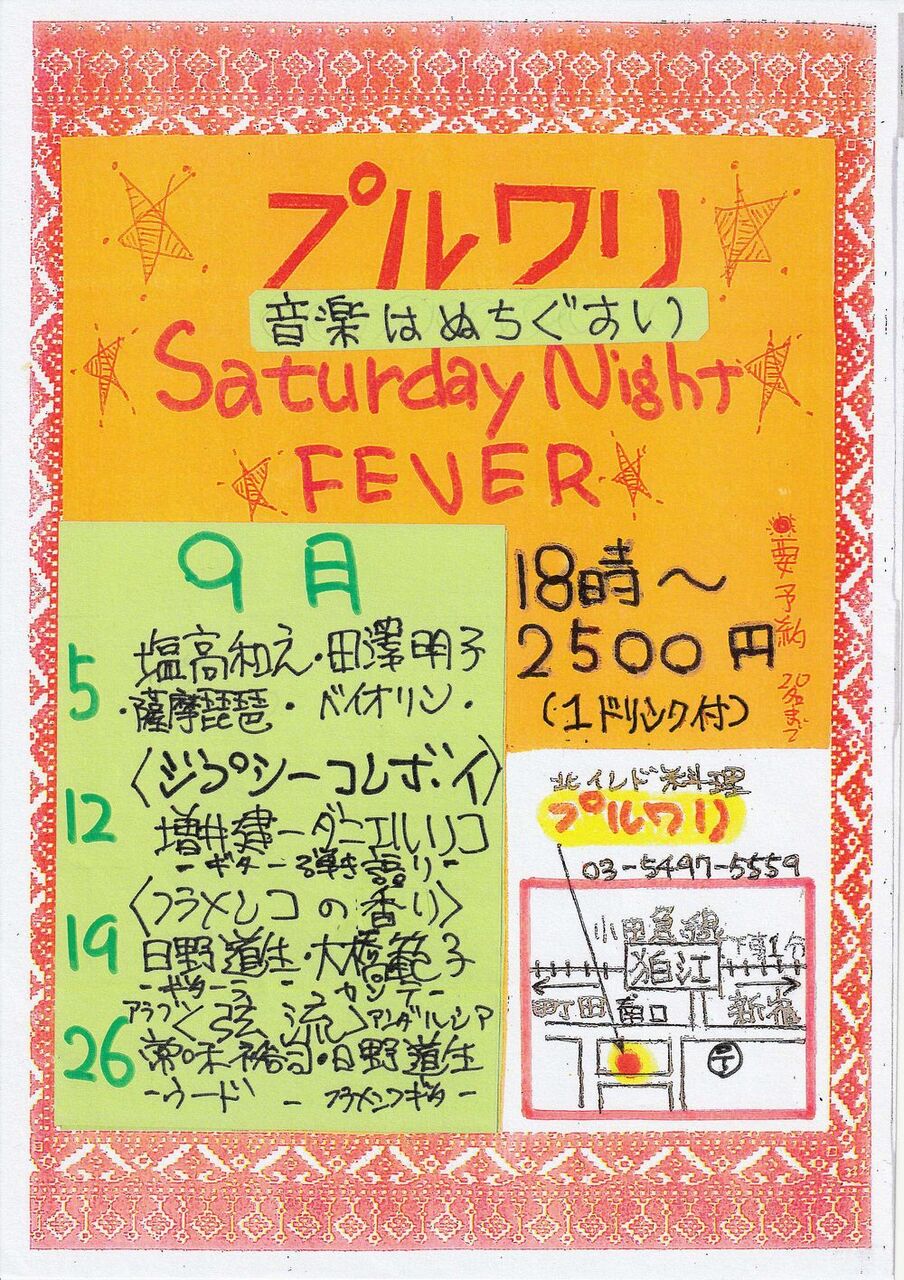 プルワリ
音楽はぬちぐすい
Saturday Night
FEVER
9月
5 塩高和え・田澤明子
・薩摩琵琶・ バイオリン・
〈ジプシーコレボイ〉
12 増井建一ダニエルリコ
-ギター弾き語り-
〈フラメンコの香り〉
19 日野道生・大橋範子
-ギター- カンテ-
アラブ〈弦流〉アンダルシア
26 常味裕司・日野道生
-ウード- フラメンコギター-
18時〜
2500円
(1ドリンク付)
要予約 20名まで
北インド料理
プルワリ
03-5497-5559
小田急線
狛江
下車1分
町田
南口
新宿
〒